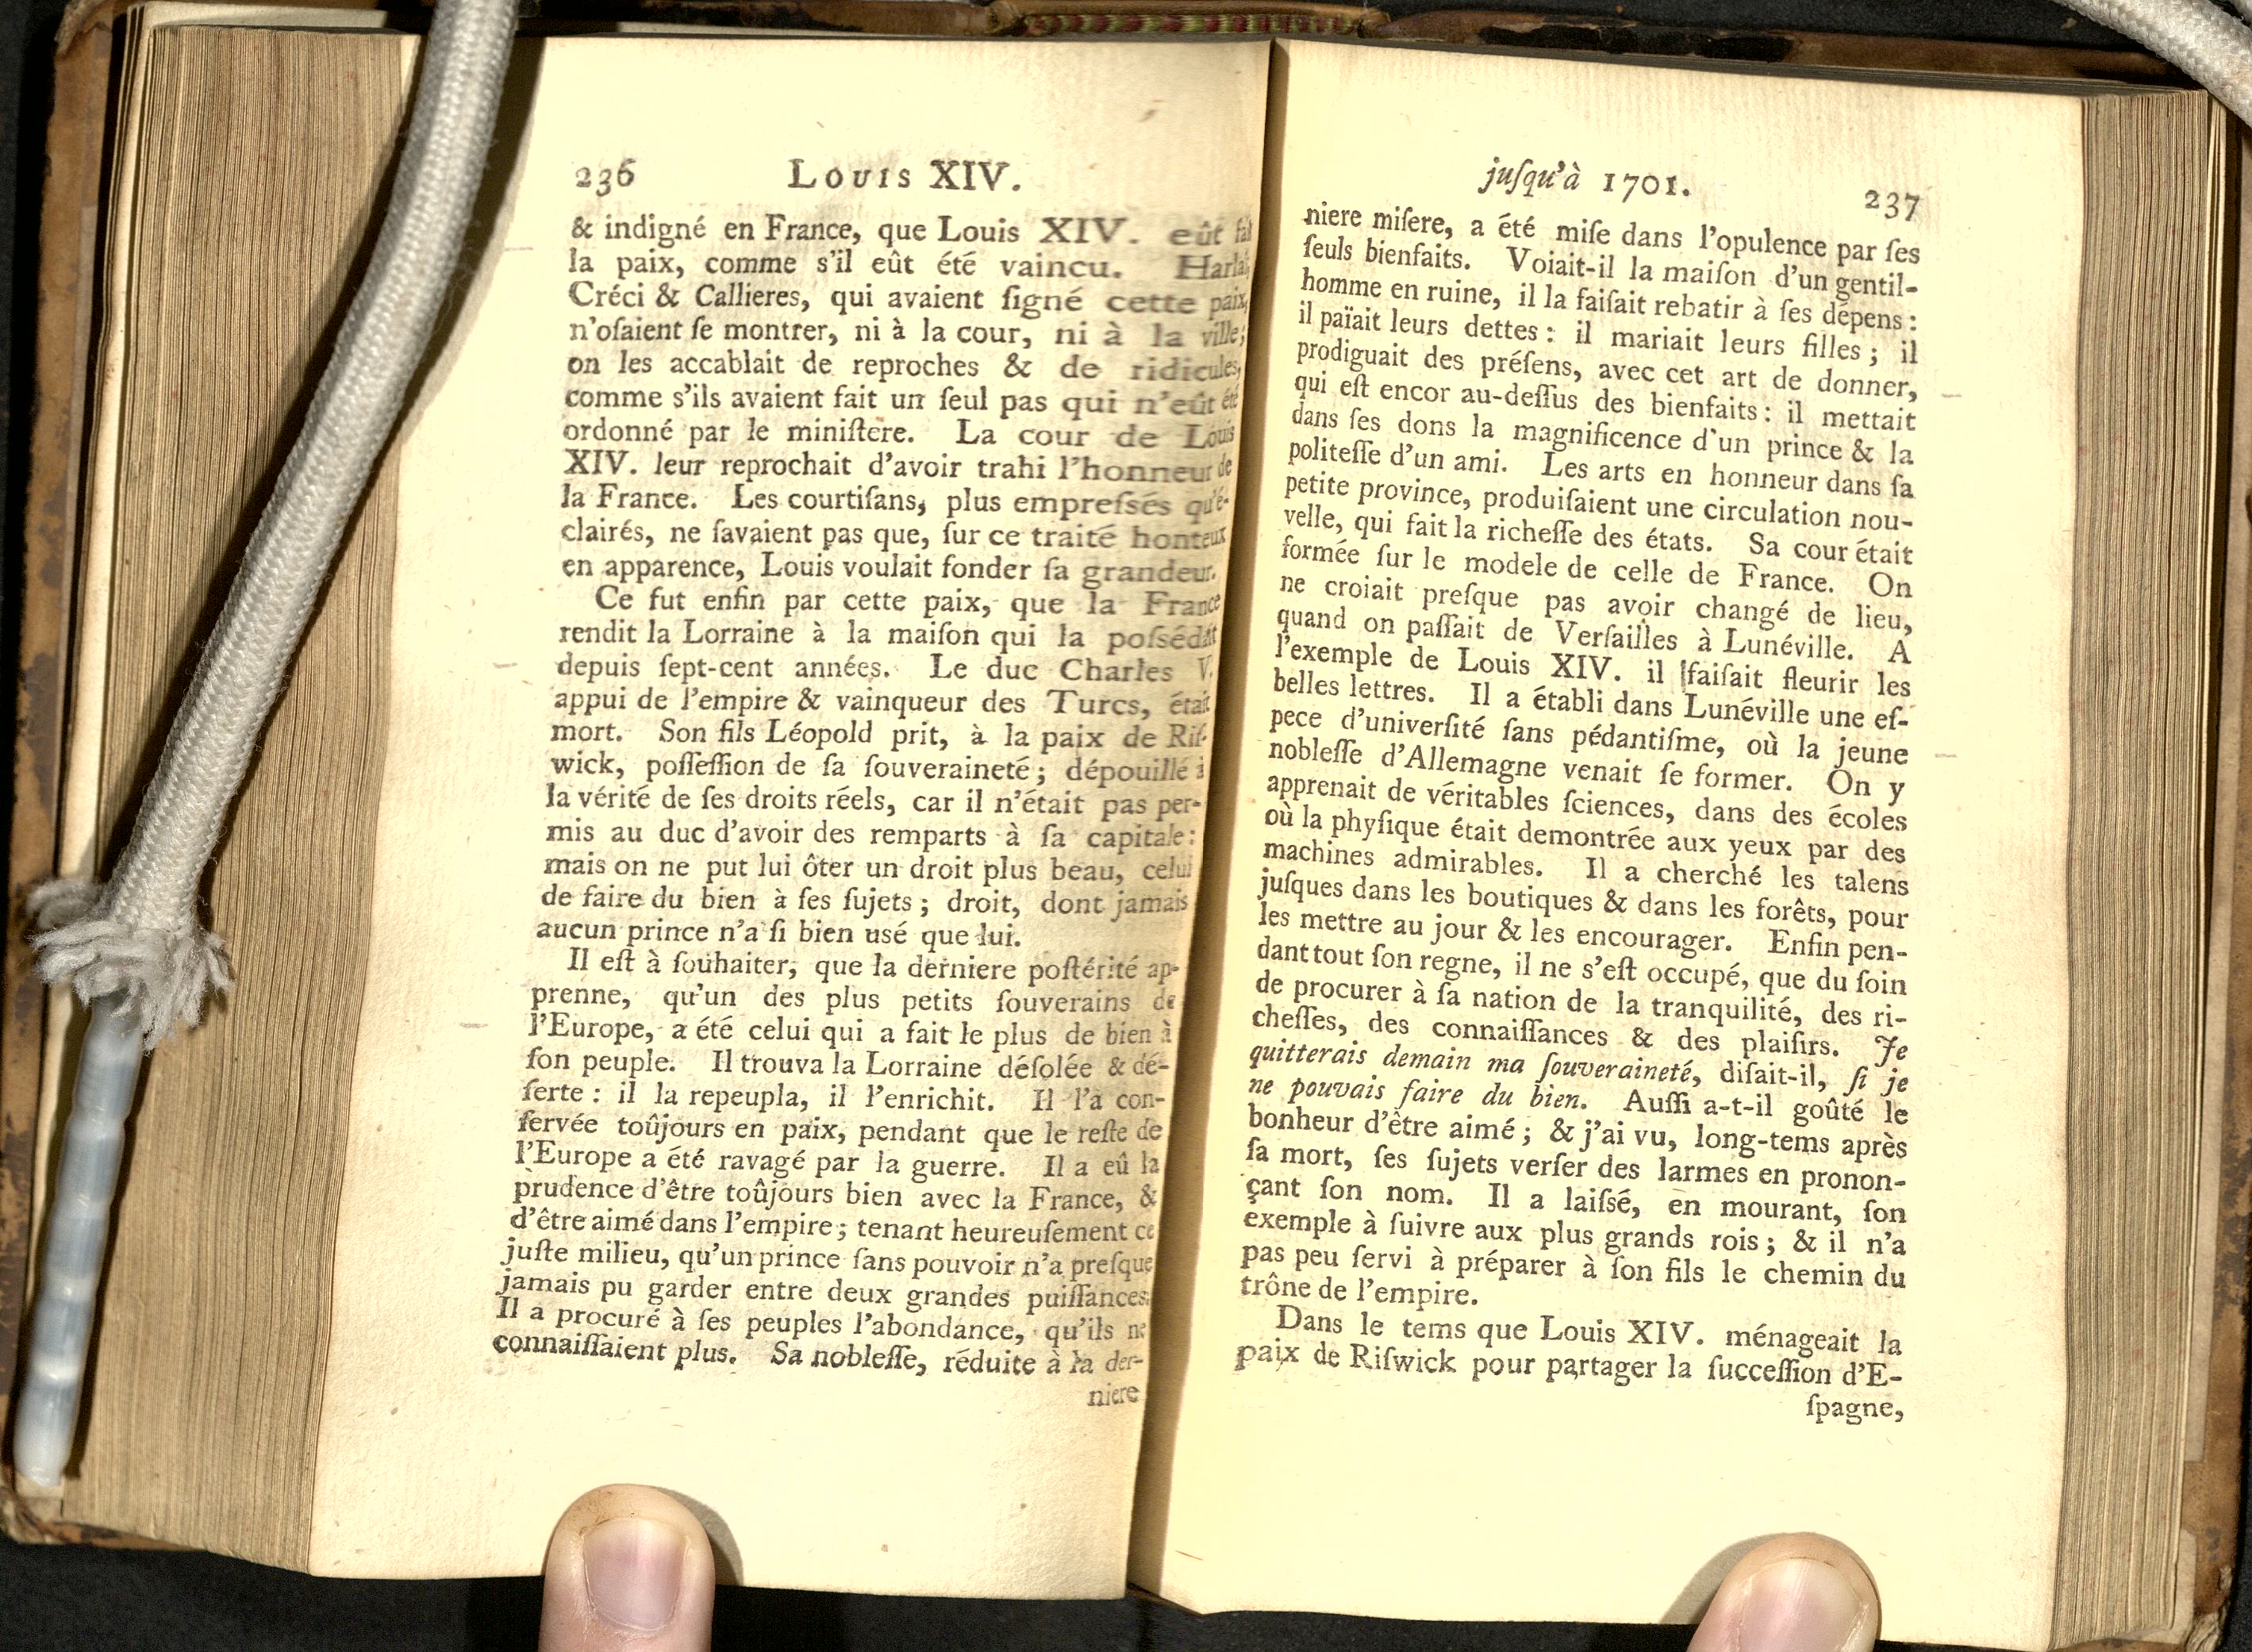 236 Louis XIV.
& indigné en France, que Louis XIV. eût fait
la paix, comme s'il eût été vaincu. Harlai,
Créci & Callieres, qui avaient ſigné cette paix,
n'oſaient ſe montrer, ni à la cour, ni à la ville;
on les accablait de reproches & de ridicules,
comme s'ils avaient fait un ſeul pas qui n'eût été
ordonné par le miniſtere. La cour de Louis
XIV. leur reprochait d'avoir trahi l'honneur de
la France. Les courtiſans, plus empreſsés qu'é-
clairés, ne ſavaient pas que, ſur ce traité honteux
en apparence, Louis voulait fonder ſa grandeur.
Ce fut enfin par cette paix, que la France
rendit la Lorraine à la maiſon qui la poſsédait
depuis ſept-cent années. Le duc Charles V.
appui de l'empire & vainqueur des Turcs, était
mort. Son fils Léopold prit, à la paix de Riſ-
wick, poſſeſſion de ſa ſouveraineté; dépouillé à
la vérité de ſes droits réels, car il n'était pas per-
mis au duc d'avoir des remparts à ſa capitale:
mais on ne put lui ôter un droit plus beau, celui
de faire du bien à ſes ſujets; droit, dont jamais
aucun prince n'a ſi bien usé que lui.
Il eſt à ſouhaiter, que la derniere poſtérité ap-
prenne, qu'un des plus petits ſouverains de
l'Europe, a été celui qui a fait le plus de bien à
ſon peuple. Il trouva la Lorraine déſolée & dé-
ſerte: il la repeupla, il l'enrichit. Il l'a con-
ſervée toûjours en paix, pendant que le reſte de
l'Europe a été ravagé par la guerre. Il a eû la
prudence d'être toûjours bien avec la France, &
d'être aimé dans l'empire; tenant heureuſement ce
juſte milieu, qu'un prince ſans pouvoir n'a preſque
jamais pu garder entre deux grandes puiſſances.
Il a procuré à ſes peuples l'abondance, qu'ils ne
connaiſſaient plus. Sa nobleſſe, réduite à la der-
niere
juſqu'à 1701. 237
niere miſere, a été miſe dans l'opulence par ſes
ſeuls bienfaits. Voiait-il la maiſon d'un gentil-
homme en ruine, il la faiſait rebatir à ſes dépens:
il païait leurs dettes: il mariait leurs filles; il
prodiguait des préſens, avec cet art de donner,
qui eſt encor au-deſſus des bienfaits: il mettait
dans ſes dons la magnificence d'un prince & la
politeſſe d'un ami. Les arts en honneur dans ſa
petite province, produiſaient une circulation nou-
velle, qui fait la richeſſe des états. Sa cour était
formée ſur le modele de celle de France. On
ne croiait preſque pas avoir changé de lieu,
quand on paſſait de Verſailles à Lunéville. A
l'exemple de Louis XIV. il faiſait fleurir les
belles lettres. Il a établi dans Lunéville une eſ-
pece d'univerſité ſans pédantiſme, où la jeune
nobleſſe d'Allemagne venait ſe former. On y
apprenait de véritables ſciences, dans des écoles
où la phyſique était demontrée aux yeux par des
machines admirables. Il a cherché les talens
juſques dans les boutiques & dans les forêts, pour
les mettre au jour & les encourager. Enfin pen-
dant tout ſon regne, il ne s'eſt occupé, que du ſoin
de procurer à ſa nation de la tranquilité, des ri-
cheſſes, des connaiſſances & des plaiſirs. Je
quitterais demain ma ſouveraineté, diſait-il, ſi je
ne pouvais faire du bien. Auſſi a-t-il goûté le
bonheur d'être aimé; & j'ai vu, long-tems après
ſa mort, ſes ſujets verſer des larmes en pronon-
çant ſon nom. Il a laiſsé, en mourant, ſon
exemple à ſuivre aux plus grands rois; & il n'a
pas peu ſervi à préparer à ſon fils le chemin du
trône de l'empire.
Dans le tems que Louis XIV. ménageait la
paix de Riſwick pour partager la ſucceſſion d'E-
ſpagne,